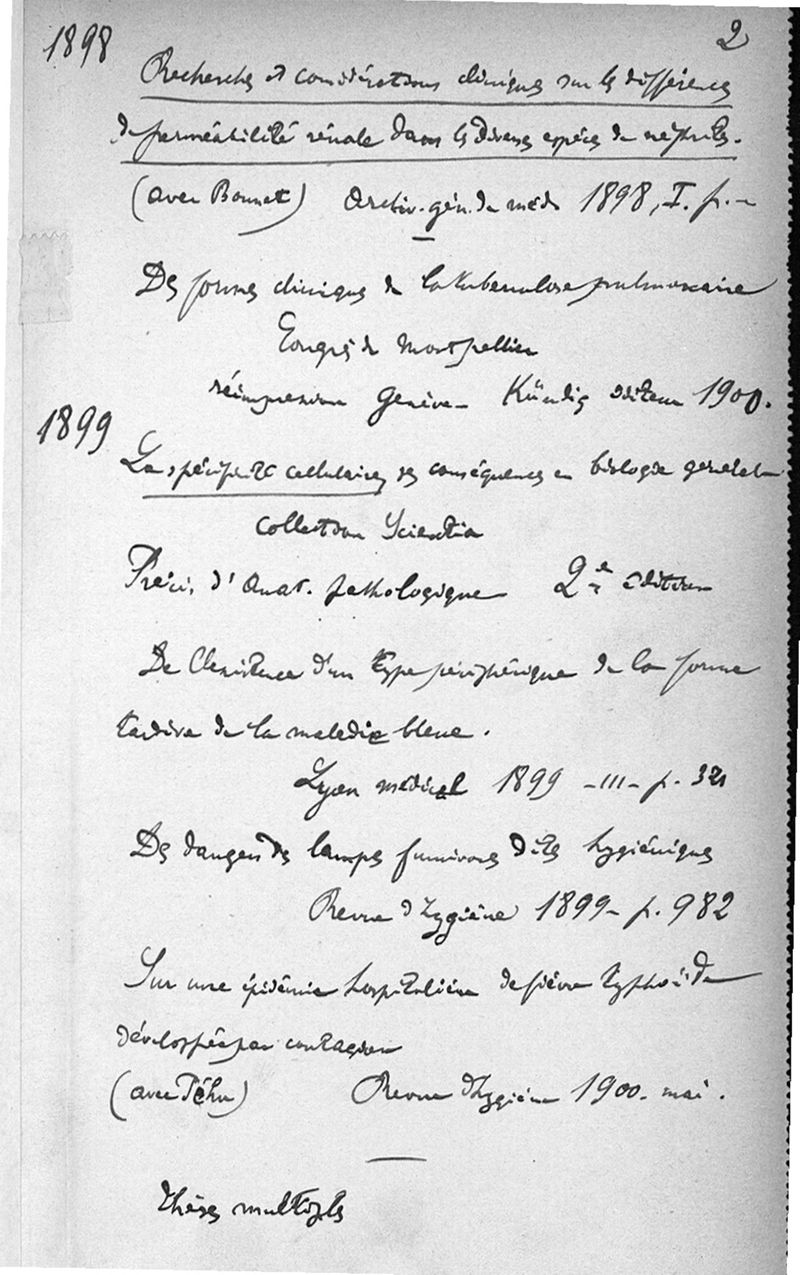 2
1898
Recherches et considérations cliniques sur les différences
de perméabilité rénale dans les diverses espèces de néphrites.
(avec Bonnet) Archiv. gén. de méd. 1898, I. p. –
Des formes cliniques de la tuberculose pulmonaire
Congrès de Montpellier
réimpression Genève – Kündig éditeur 1900.
1899
La spécificité cellulaire, ses conséquences en biologie générale
Collection Scientia
Précis d'Anat. pathologique 2e édition
De l'existence d'un type périphérique de la forme
tardive de la maladie bleue.
Lyon médical 1899 – III – p. 321
Des dangers des lampes fumivores dites hygiéniques
Revue d'hygiène 1899 – p. 982
Sur une épidémie hospitalière de fièvre typhoïde
développée par contagion
(avec Péhu) Revue d'hygiène 1900 – mai.
thèses multiples